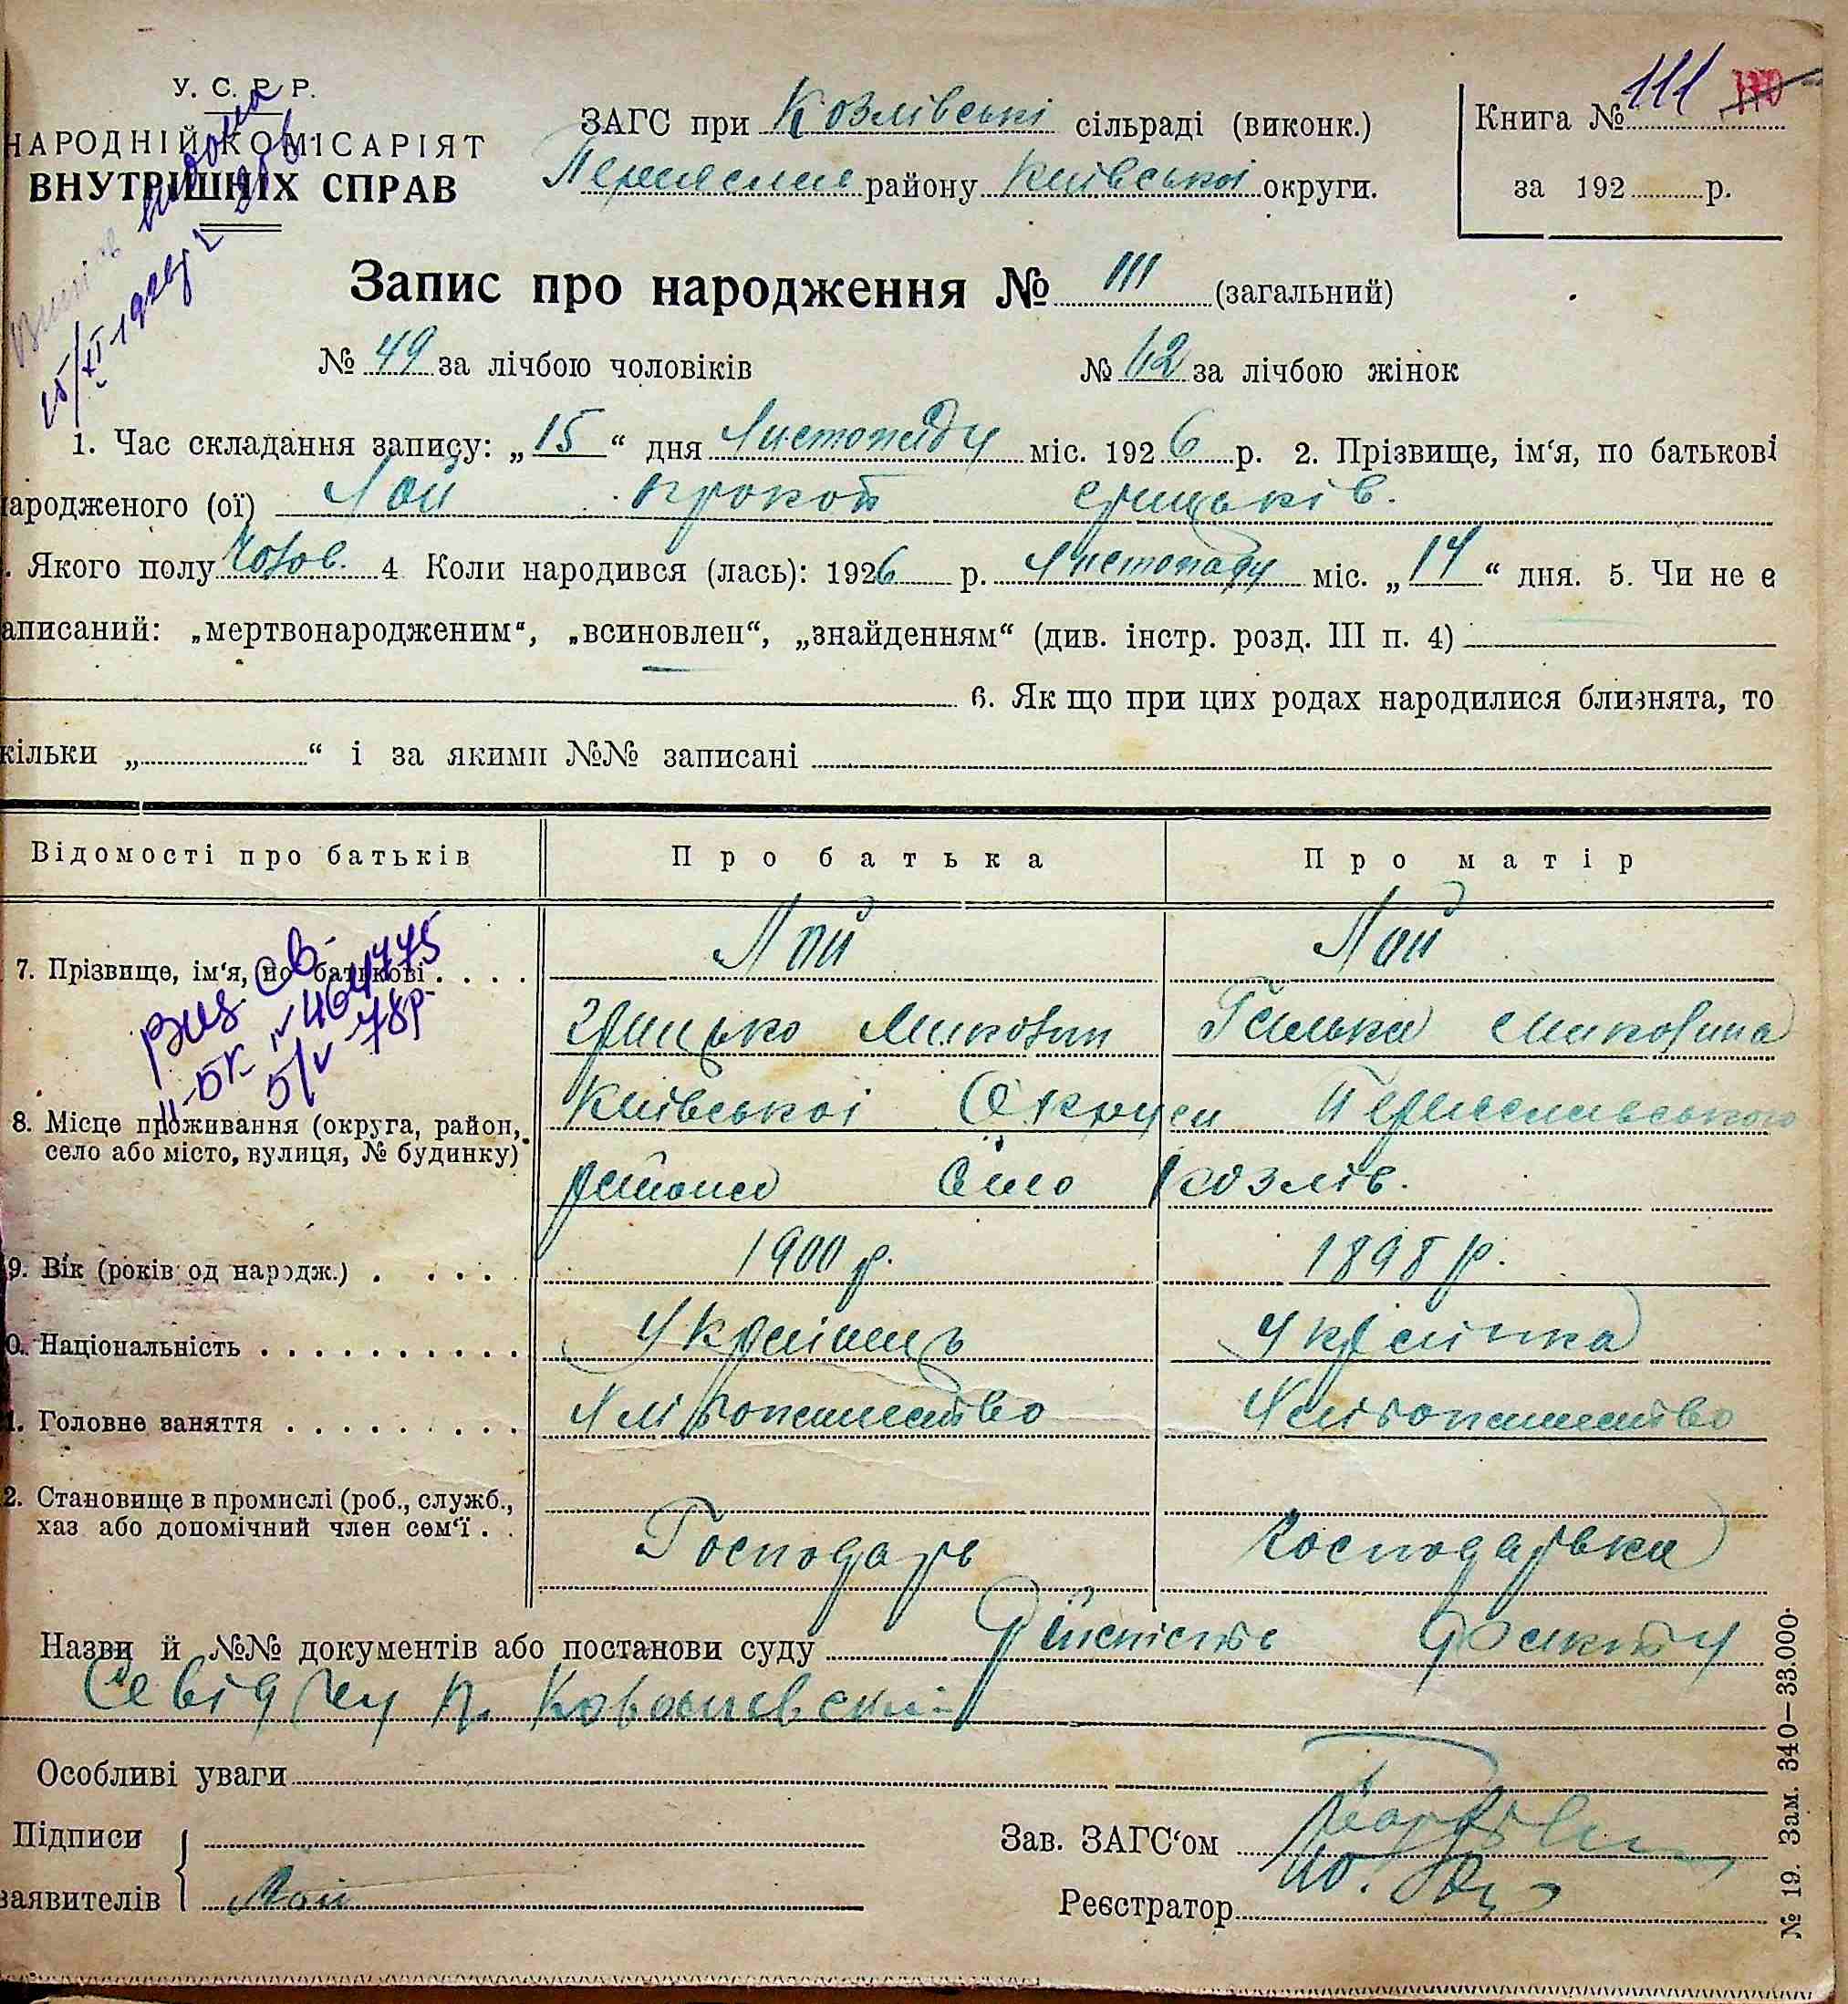 У. С. Р. Р.
НАРОДНІЙ КОМІСАРІЯТ
ВНУТРІШНІХ СПРАВ
ЗАГС при Козлівські сільраді (виконк.)
району Київської округи.
Книга № 111 110
за 192 р.
Запис про народження № 111 (загальний)
№ 49 за лічбою чоловіків № 62 за лічбою жінок
1. Час складання запису: „15“ дня Листопаду міс. 1926 р. 2. Прізвище, ім‘я, по батькові
народженого (ої) Лой Прокоп Грицьків.
. Якого полу Чолов. 4 Коли народився (лась): 1926 р. Листопаду міс. „14“ дня. 5. Чи не є
аписаний: „мертвонародженим“, „всиновлен“, „знайденням“ (див. інстр. розд. III п. 4)
6. Як що при цих родах народилися близнята, то
кільки „ “ і за якими №№ записані
Відомості про батьків Про батька Про матір
7. Прізвище, ім‘я, по батькові . . . . Лой Лой
Грицько Миколин Галька Миколина
8. Місце проживання (округа, район, село або місто, вулиця, № будинку) Київської Округи Переяславського
района Село Козлів.
9. Вік (років од народж.) . . . . . 1900 р. 1898 р.
0. Національність . . . . . . . . . . Українець Українка
1. Головне заняття . . . . . . . . . Хліборопашество Хлібопашество
2. Становище в промислі (роб., служб.,
хаз або допомічний член сем‘ї . . Господарь Господарька
Назви й №№ документів або постанови суду
Особливі уваги
Підписи
заявителів Лой
Зав. ЗАГС‘ом
Реєстратор
№ 19. Зам. 340—33.000.